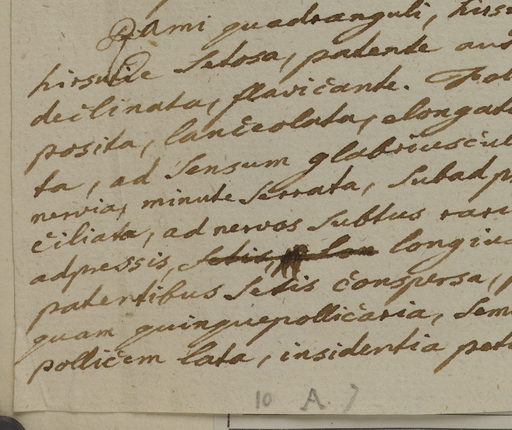 Rami quadranguli, hirsu
hirsutie setosa, patente aut
declinata, flavicante. Fol
posita, lanceolata, elongat
ta, ad sensum glabriuscul
nervia, minute serrata, subadp
ciliata, ad nervos subtus rari
adpressis, setis, longiu
patentibus setis conspersa,
quam quinquepollicaria, sem
pollicem lata, insidentia peti
10 A. 7